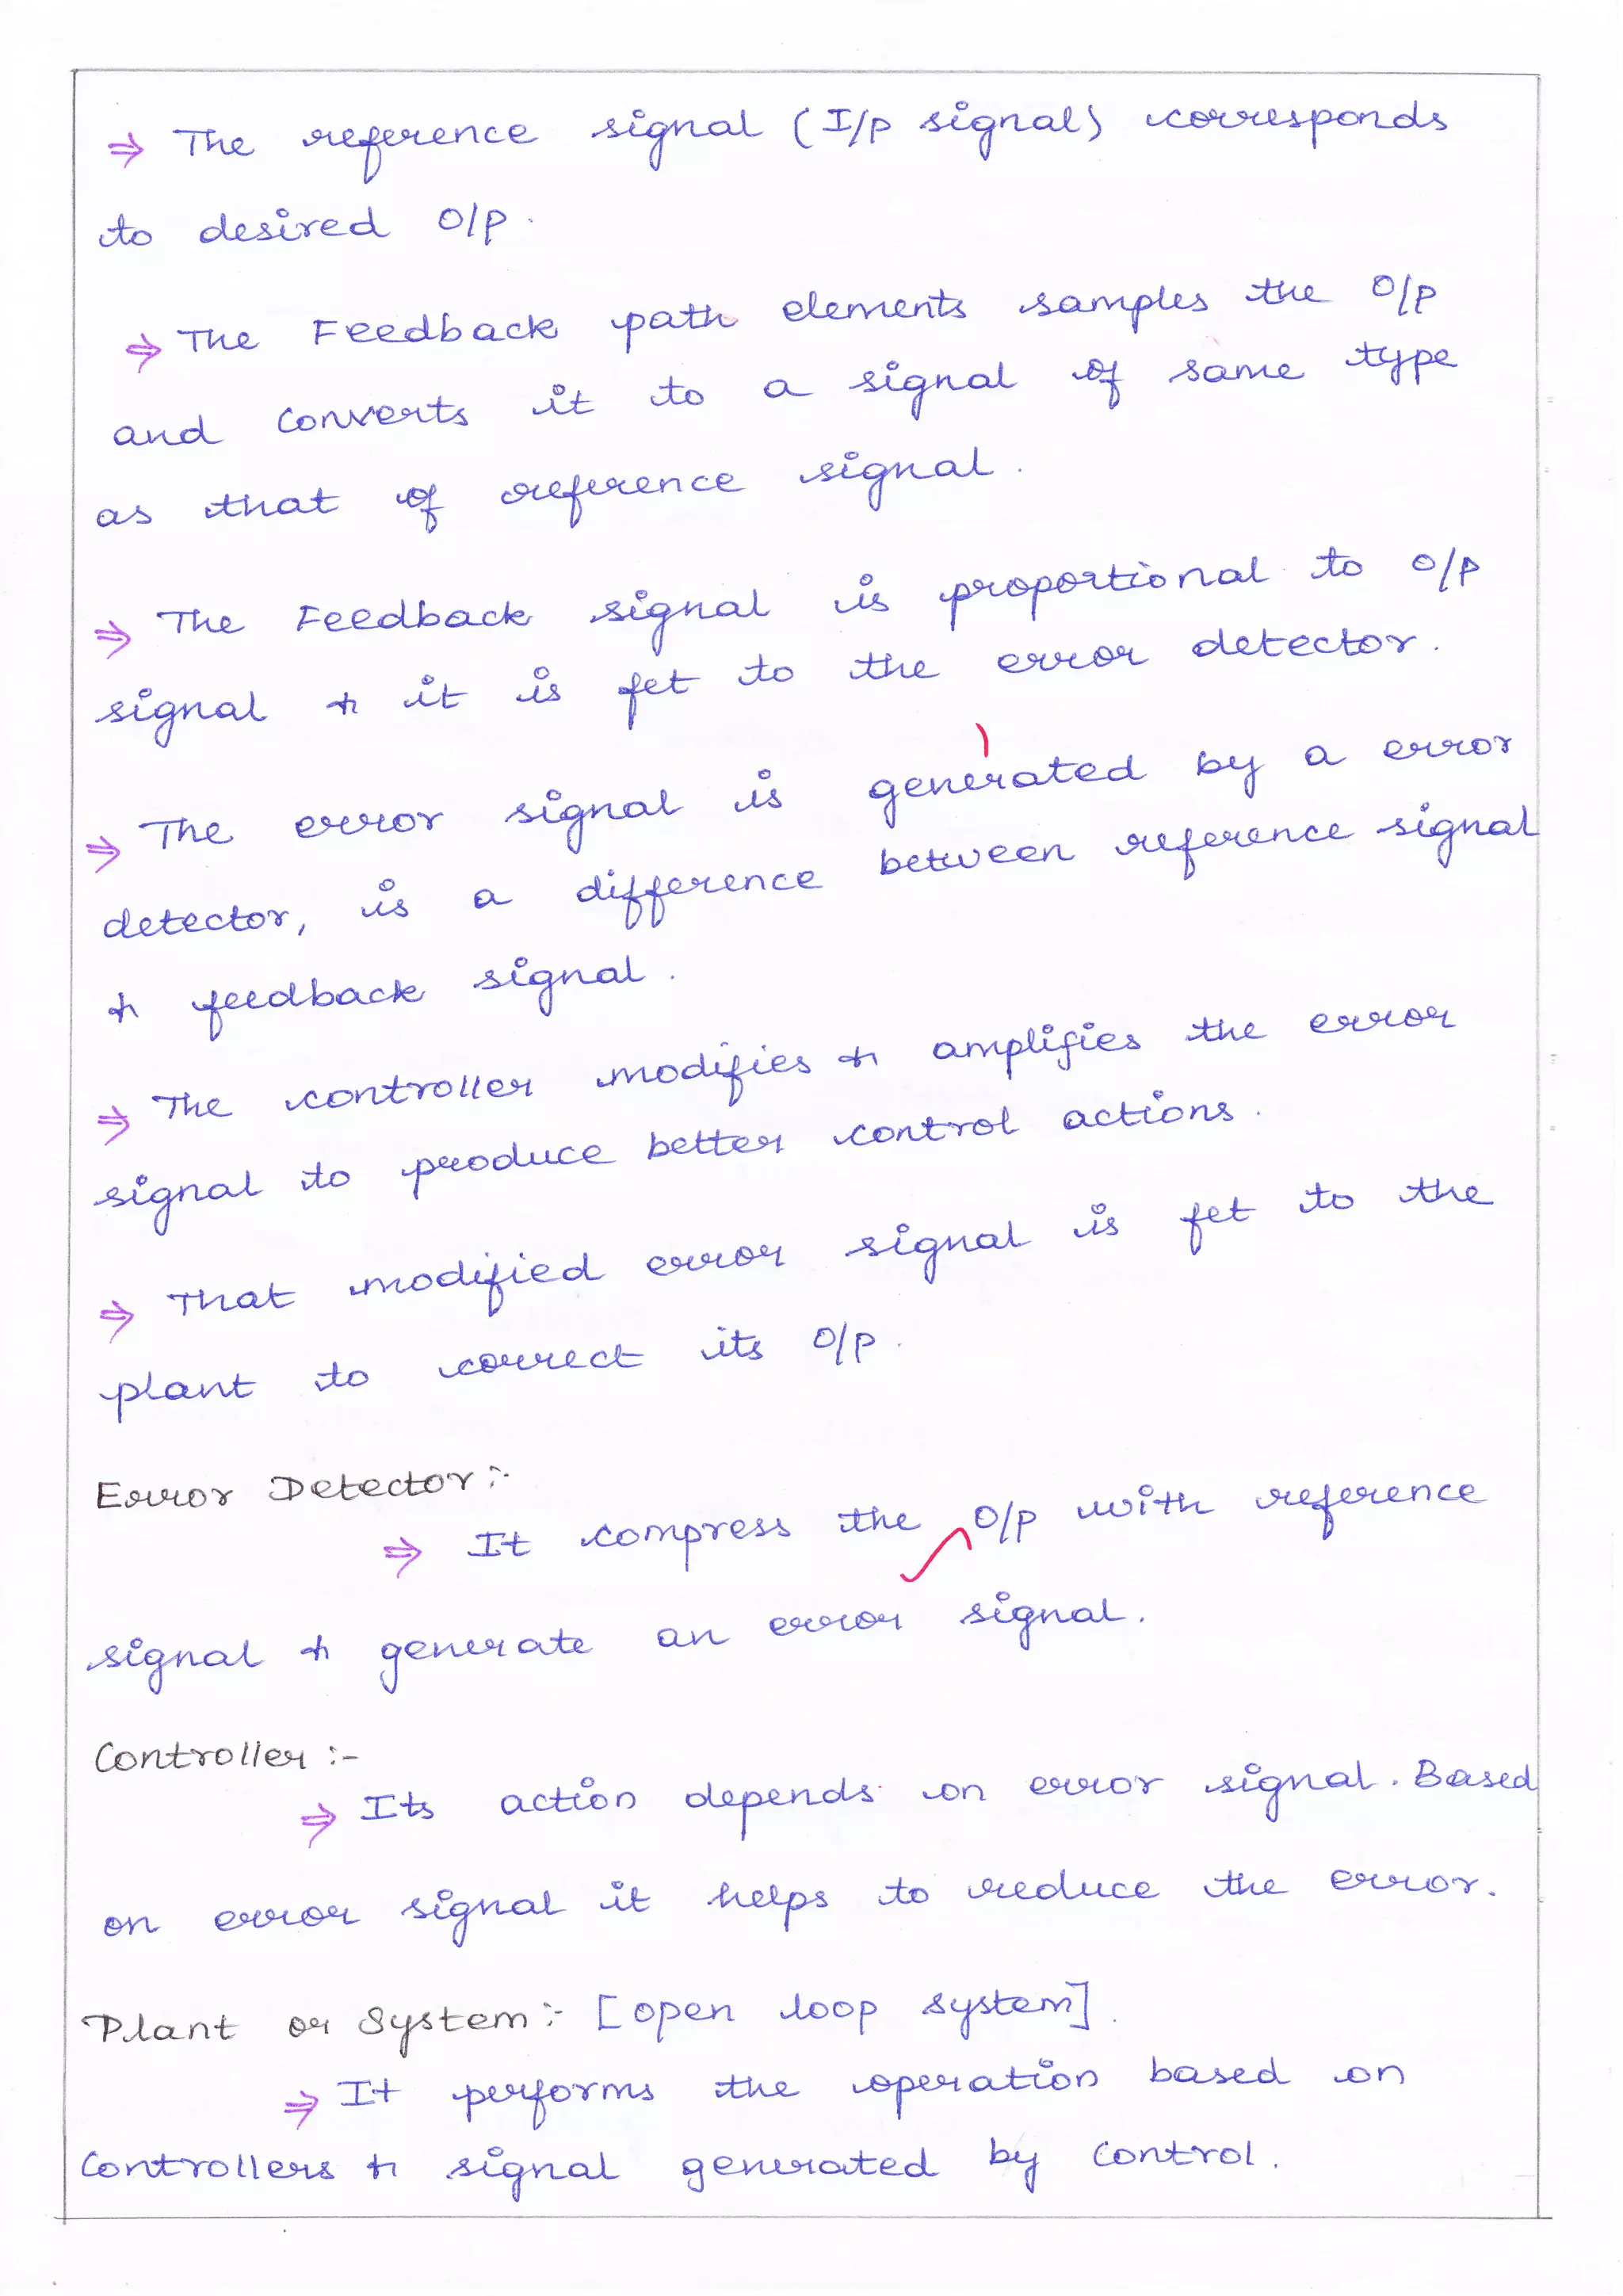 ⇒ The reference signal (I/p signal) corresponds
to desired O/p.
⇒ The Feedback path elements samples the O/p
and converts it to a signal of same type
as that of reference signal.
⇒ The Feedback signal is proportional to o/p
signal & it is fet to the error detector.
⇒ The error signal is generated by a error
detector, is a difference between reference signal
& feedback signal.
⇒ The controller modifies & amplifies the error
signal to produce better control actions.
⇒ That modified error signal is fet to the
plant to correct its O/p.
Error Detector :-
⇒ It compress the O/p with reference
signal & generate an error signal.
Controller :-
⇒ Its action depends on error signal. Based
on error signal it helps to reduce the error.
Plant or System :- [open loop system].
⇒ It performs the operation based on
Controllers & signal generated by Control.